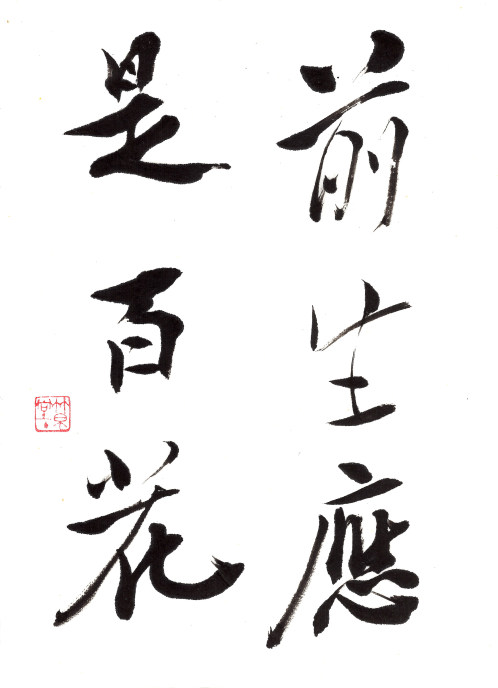 前生應
是百花